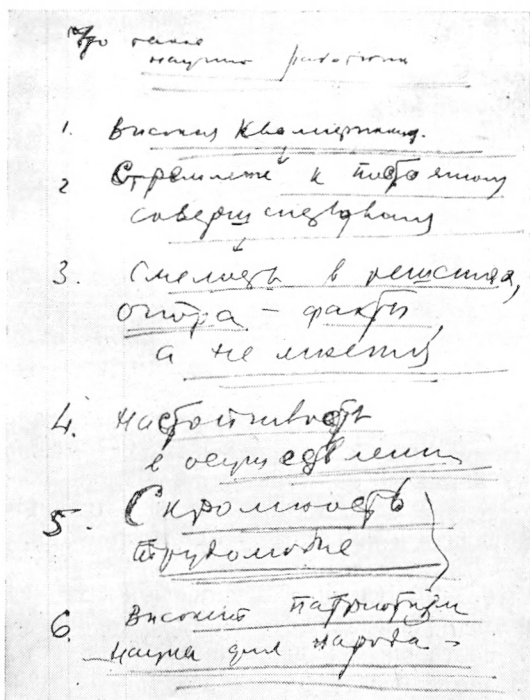 Что такое
научный работник
1. Высокая квалификация.
2 Стремление к постоянному
совершенствованию
3. Смелость в решениях,
опора - факты,
а не мнения
4. Настойчивость
в осуществлении
5. Скромность
трудолюбие
6. Высокий патриотизм
наука для народа -